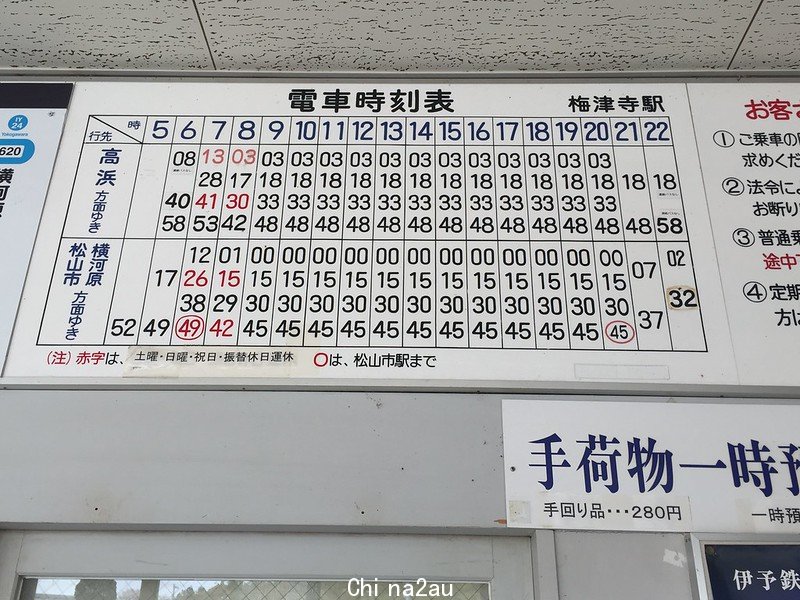 電車時刻表 梅津寺駅
行先 時 5 6 7 8 9 10 11 12 13 14 15 16 17 18 19 20 21 22
高浜 方面ゆき
08 13 03 03 03 03 03 03 03 03 03 03 03 03 03
28 17 18 18 18 18 18 18 18 18 18 18 18 18 18 18
40 41 30 33 33 33 33 33 33 33 33 33 33 33 33
58 53 42 48 48 48 48 48 48 48 48 48 48 48 48 48 58
横河原 松山市 方面ゆき
12 01 00 00 00 00 00 00 00 00 00 00 00 00 07 02
17 26 15 15 15 15 15 15 15 15 15 15 15 15 15
38 29 30 30 30 30 30 30 30 30 30 30 30 30 37 32
52 49 49 42 45 45 45 45 45 45 45 45 45 45 45 45
(注) 赤字は、土曜・日曜・祝日・振替休日運休 ○は、松山市駅まで
IY
24
Yokogawara
620
横河原
お客さ
① ご乗車の
求めくだ
② 法令に
お断り
③ 普通乗
途中
④ 定期
方は
手荷物一時預
手回り品･･･280円
一時預
伊予鉄
Chi na2au